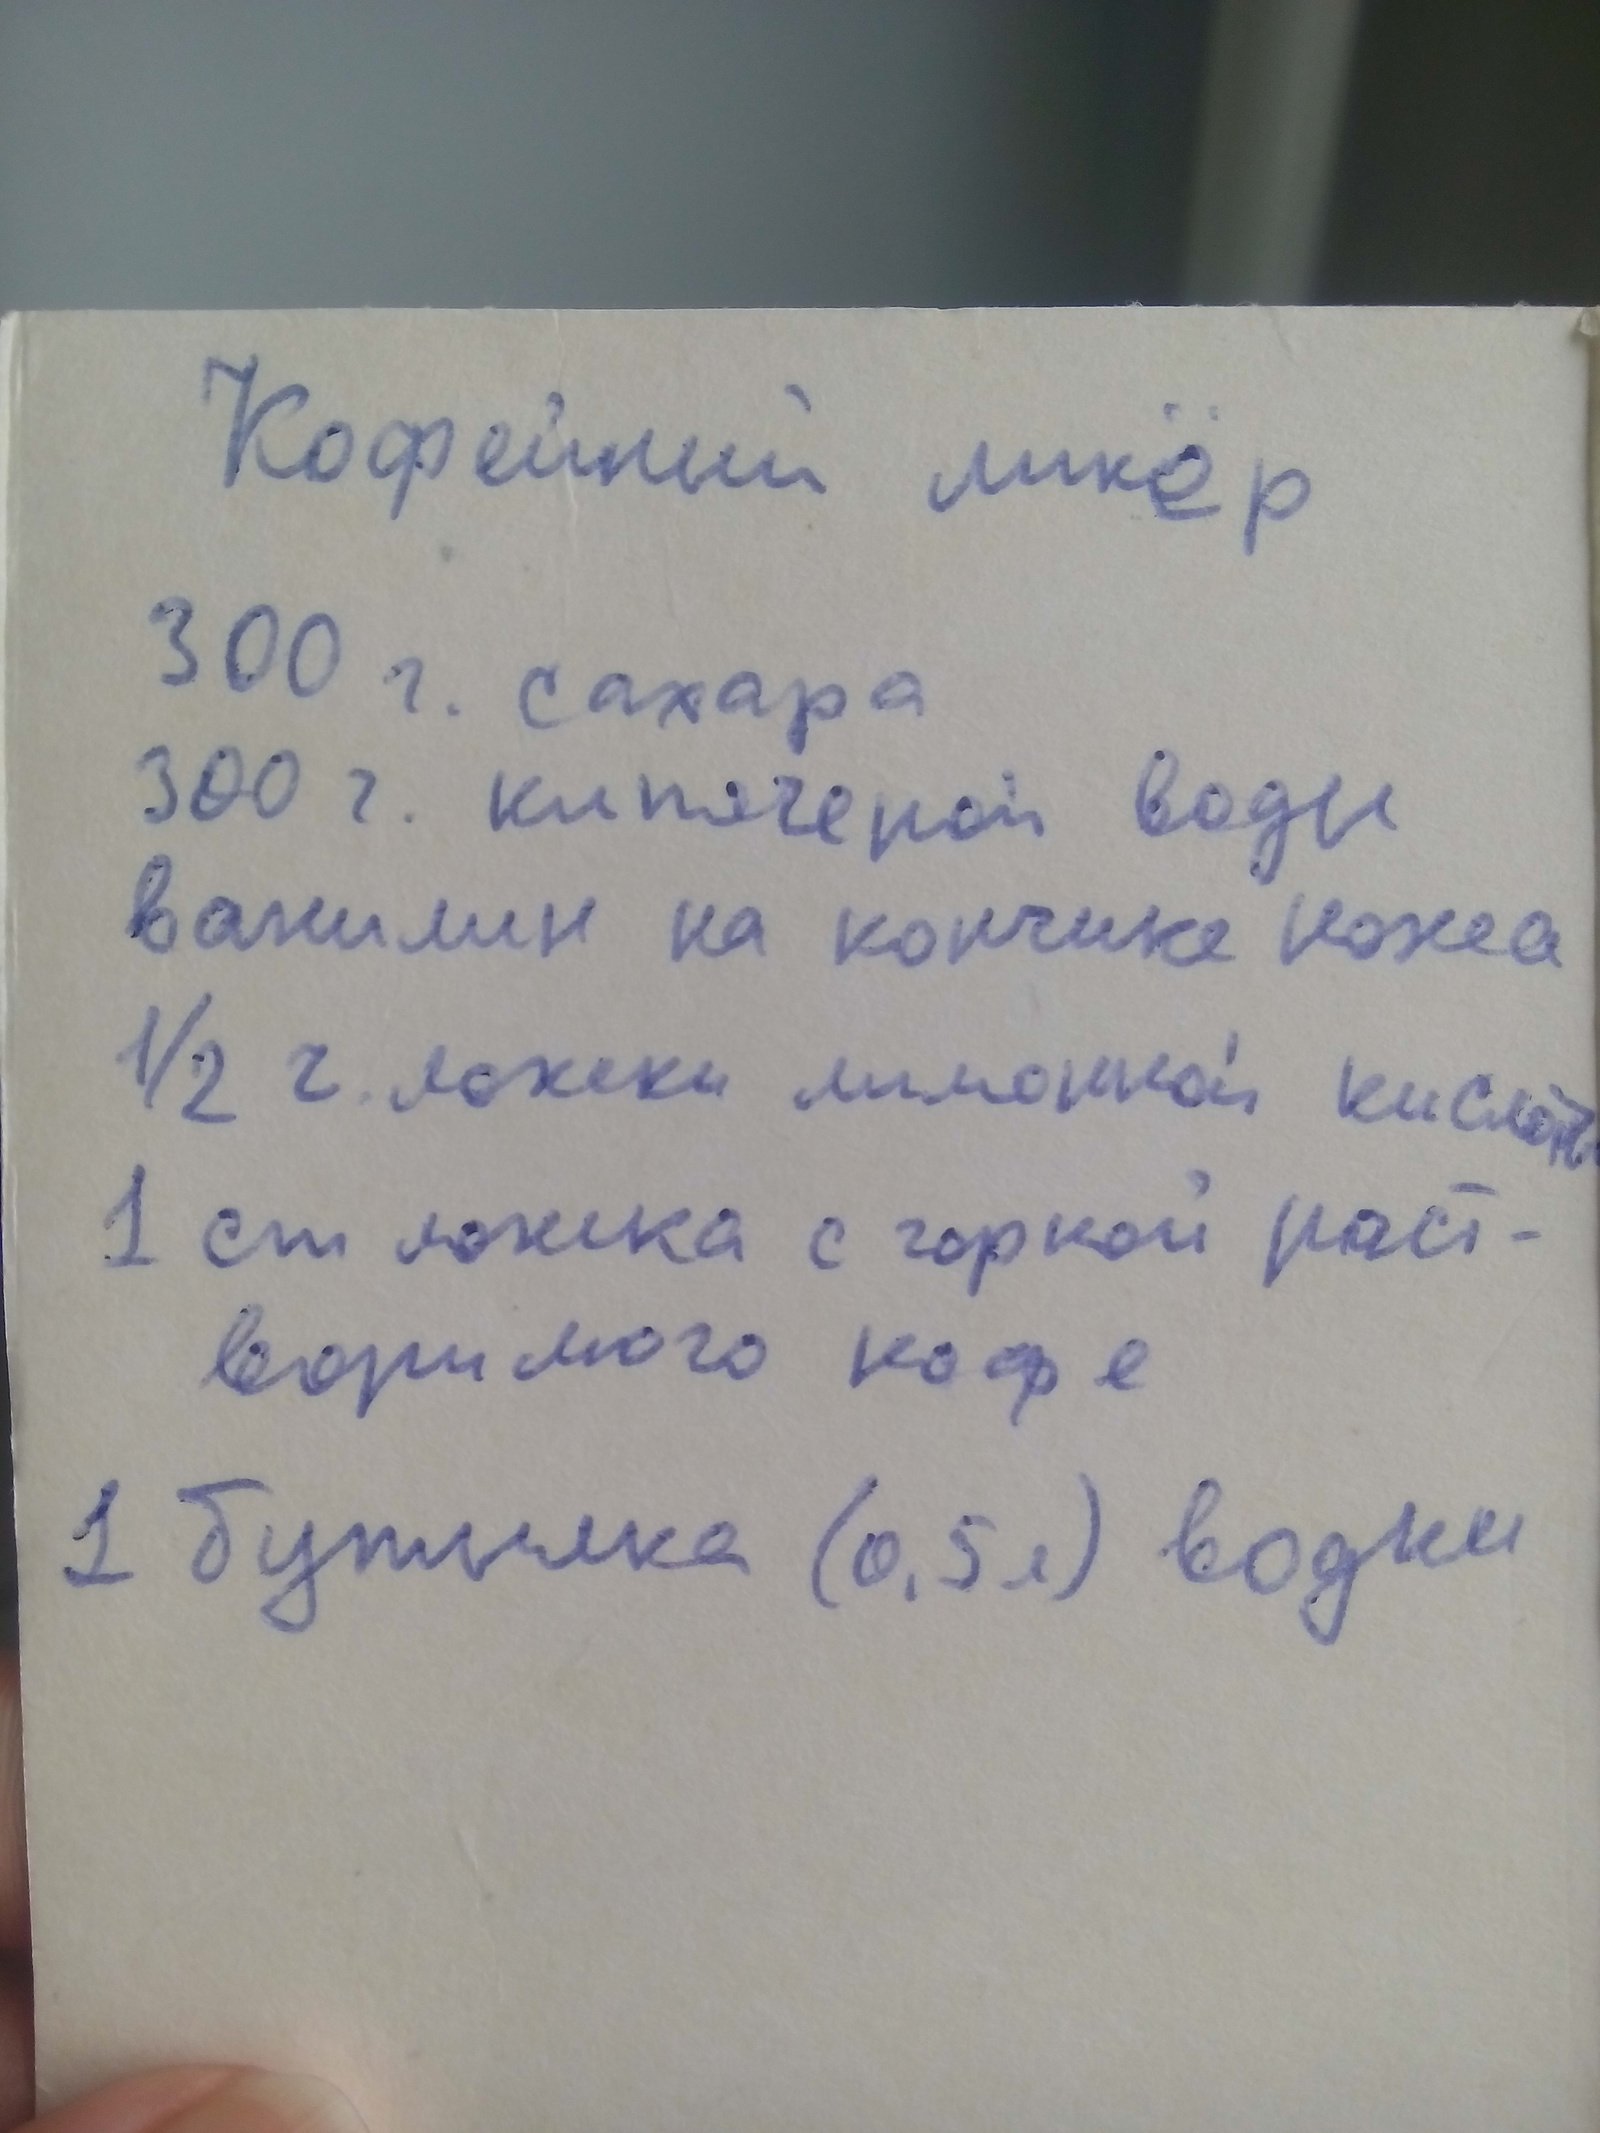 Кофейный ликёр
300 г. сахара
300 г. кипяченой воды
ванилин на кончике ножа
1/2 ч. ложки лимонной кислоты
1 ст ложка с горкой раст-
воримого кофе
1 бутылка (0,5 л) водки